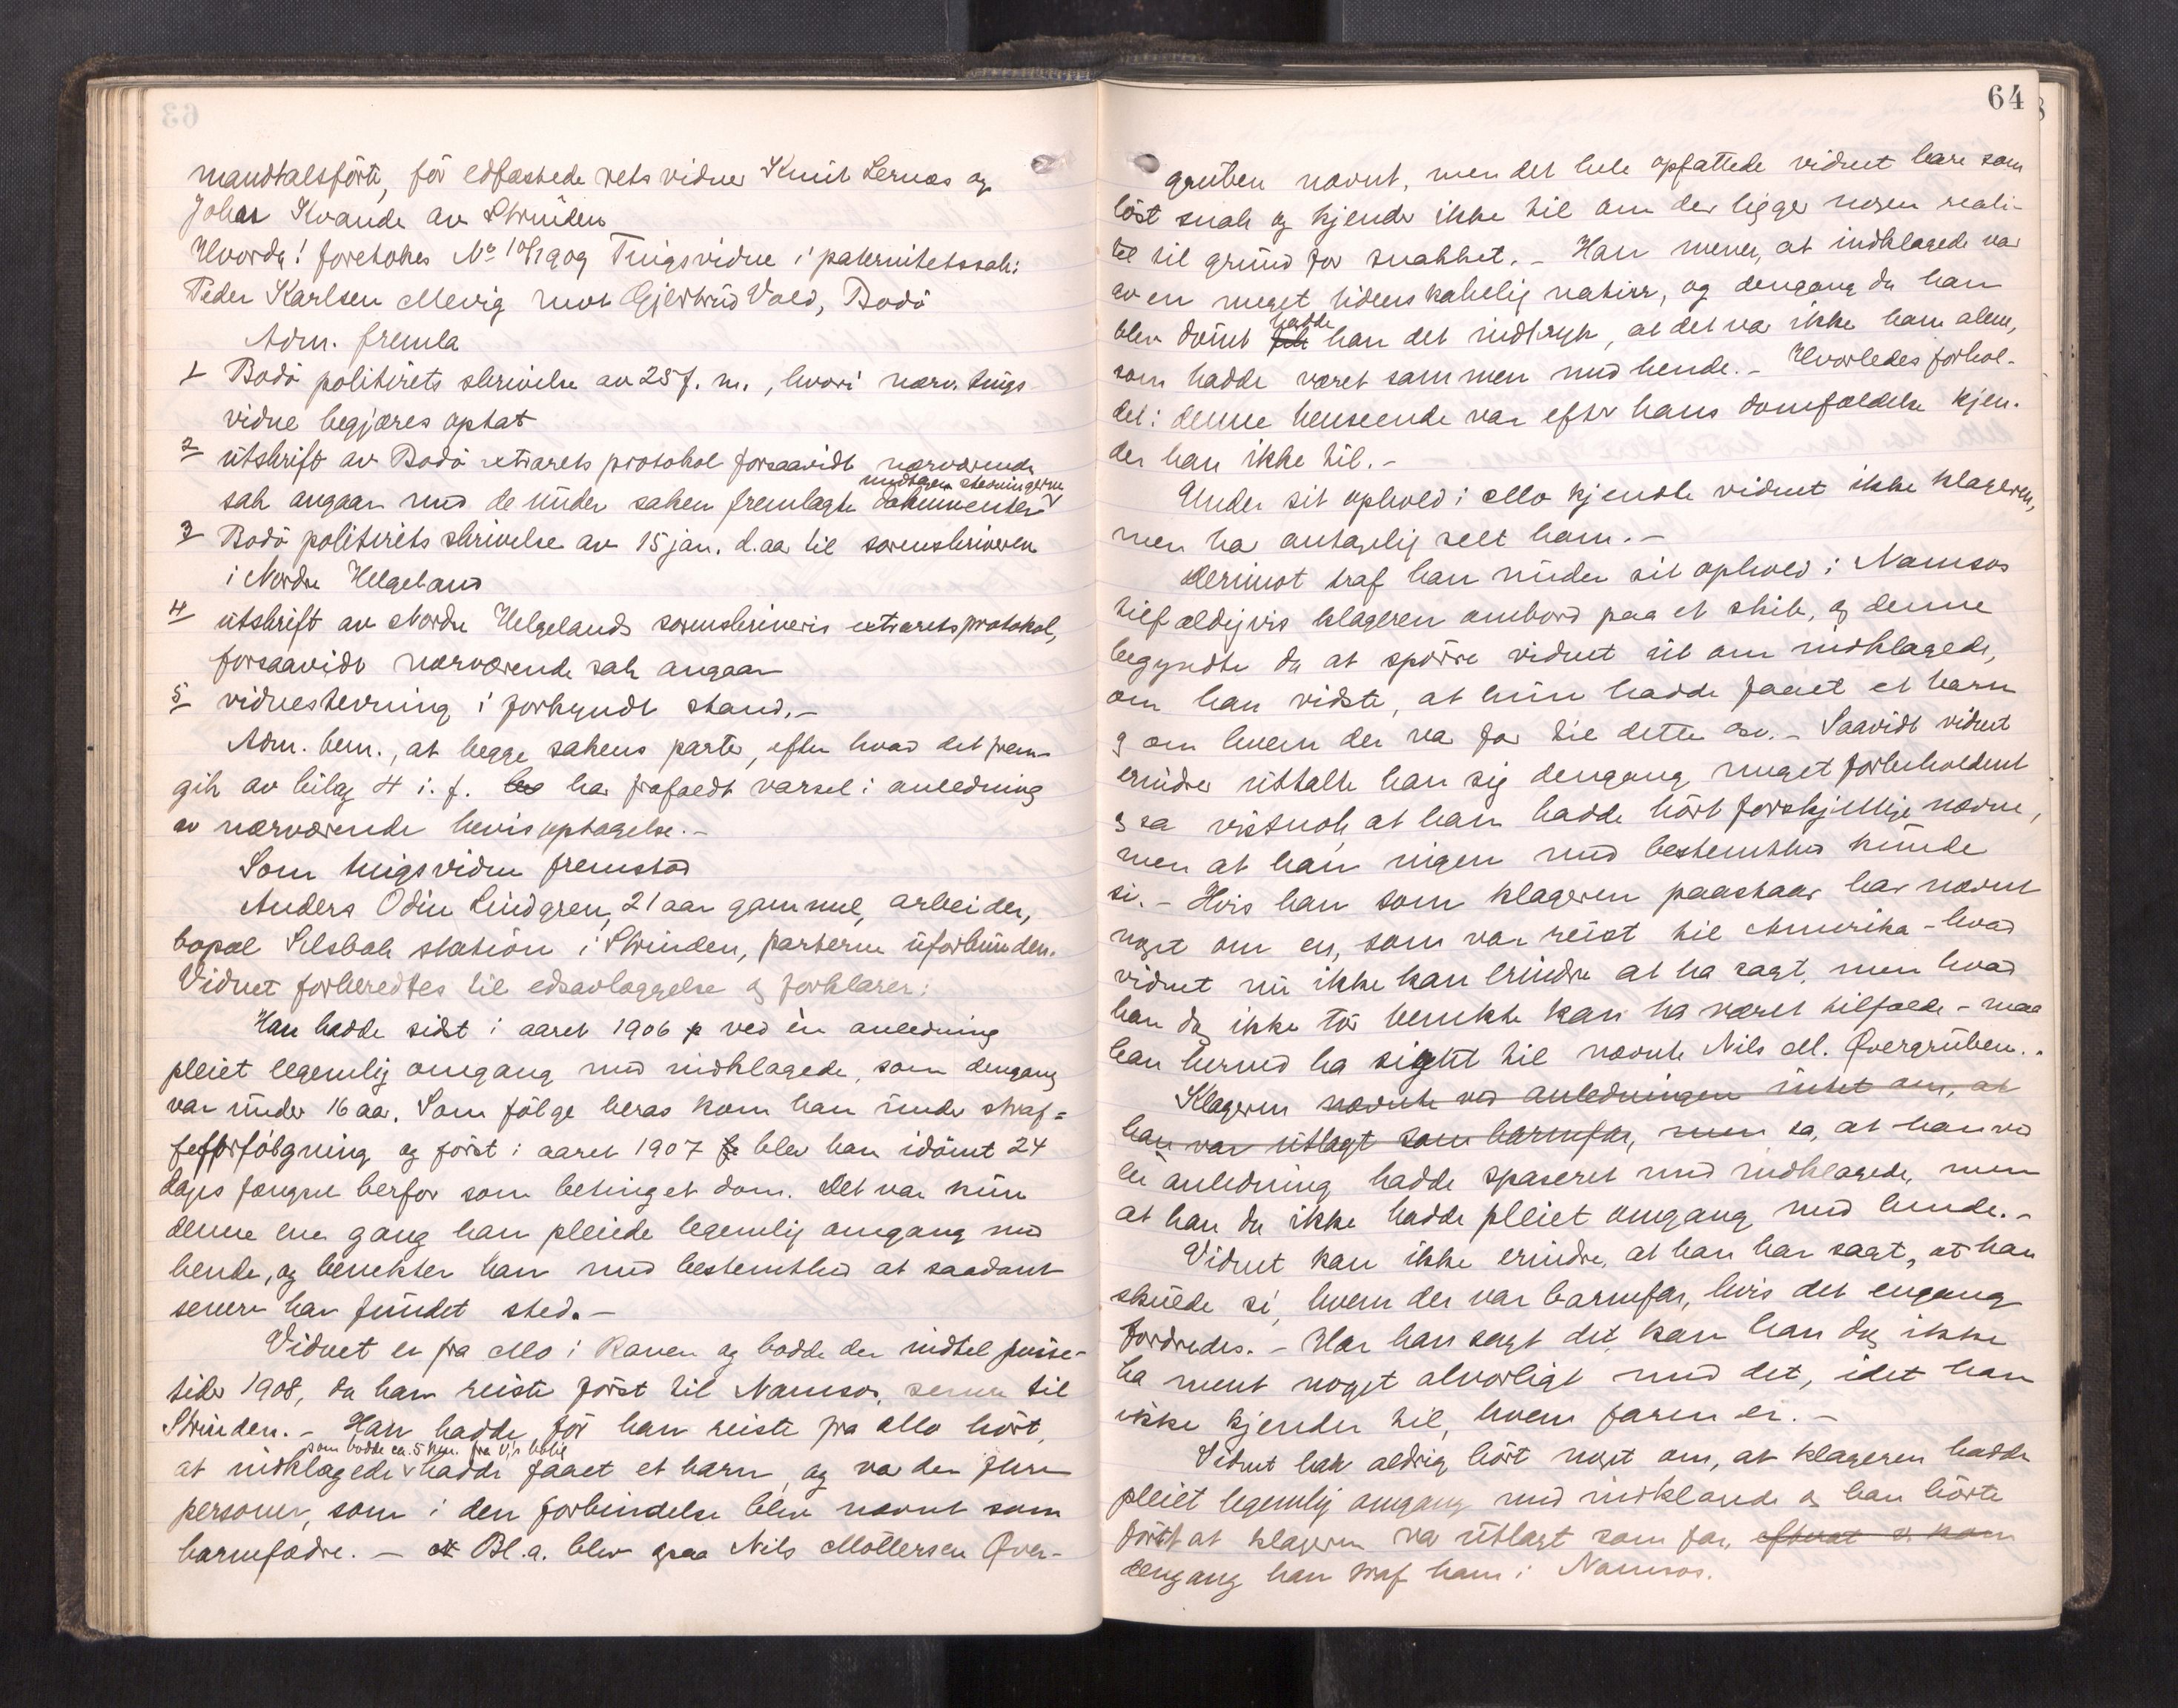 63
mandtalsförte, för edfæstede retsvidner Knut Lernæs og
Johan Kvande av Strinden
Hvorda! foretokes No 10/1909 Tingsvidne i paternitetssak:
Peder Karlsen Mevig mot Gjertrud Vold, Bodö
Adm. fremla
1 Bodö politirets skrivelse av 25 f. m., hvori nærv. tings-
vidne begjæres optat
2 utskrift av Bodö extrarets protokol forsaavidt nærværende
sak angaar med de under saken fremlagte dokumenter undtagen stevningerne
3 Bodö politirets skrivelse av 15 jan. d.aa til sorenskriveren
i Nordre Helgeland
4 utskrift av Nordre Helgelands sorenskriveris extraretsprotokol,
forsaavidt nærværende sak angaar
5 vidnestevning i forkyndt stand.-
Adm. bem., at begge sakens parter, efter hvad det frem-
gik av bilag 4 i. f. har frafaldt varsel i anledning
av nærværende bevisoptagelse.-
Som tingsvidne fremstod
Anders Odin Lindgren, 21 aar gammel, arbeider,
bopæl Selsbak station i Strinden, parterne uforbunden.
Vidnet forberedtes til edsavlæggelse og forklarer:
Han hadde sidst i aaret 1906 ved èn anledning
pleiet legemlig omgang med indklagede, som dengang
var under 16 aar. Som fölge heraf kom han under straf=
feforfölgning og först i aaret 1907 blev han idömt 24
dages fængsel herfor som betinget dom. Det var kun
denne ene gang han pleiede legemlig omgang med
hende, og benekter han med bestemthed at saadant
senere har fundet sted.-
Vidnet er fra Mo i Ranen og bodde der indtil pinse-
tider 1908, da han reiste först til Namsos, senere til
Strinden.- Han hadde, för han reiste fra Mo hört,
at indklagede som bodde ca. 5 km. fra v's bolig hadde faaet et barn, og var der flere
personer, som i den forbindelse blev nævnt som
barnefædre. - Bl.a. blev ogsaa Nils Möllersen Över-
64
gruben nævnt, men det hele opfattede vidnet bare som
löst snak og kjender ikke til om der ligger nogen reali-
tet til grund for snakket.- Han mener, at indklagede var
av en meget lidenskabelig natur, og dengang da han
blev dömt hadde han det indtryk, at det var ikke ham alene,
som hadde været sammen med hende.- Hvorledes forhol-
det i denne henseende var efter hans domfældelse kjen-
der han ikke til.-
Under sit ophold i Mo kjendte vidnet ikke klageren,
men har antagelig seet ham.-
Derimot traf han under sit ophold i Namsos
tilfældigvis klageren ombord paa et skib, og denne
begyndte da at spörre vidnet ut om indklagede,
om han vidste, at hun hadde faaet et barn
og om hvem der var far til dette osv.- Saavidt vidnet
erindrer uttalte han sig dengang meget forbeholdent
og sa vistnok, at han hadde hört forskjellige nævne,
men at han ingen med bestemthed kunde
si.- Hvis han som klageren paastaar har nævnt
noget om en, som var reist til Amerika - hvad
vidnet nu ikke kan erindre at ha sagt, men hvad
han dog ikke tör benekte kan ha været tilfælde - maa
han herved ha sigtet til nævnte Nils M. Övergruben.-
Klageren nævnte ved anledningen intet om, at
han var utlagt som barnefar, men sa, at han ved
en anledning hadde spaseret med indklagede, men
at han da ikke hadde pleiet omgang med hende.-
Vidnet kan ikke erindre, at han har sagt, at han
skulde si, hvem der var barnefar, hvis det engang
fordredes.- Har han sagt det, kan han dog ikke
ha ment noget alvorligt med det, idet han
ikke kjender til, hvem faren er.-
Vidnet har aldrig hört noget om, at klageren hadde
pleiet legemlig omgang med indklagede og han hörte
först at klageren var utlagt som far, efterat
dengang han traf ham i Namsos.